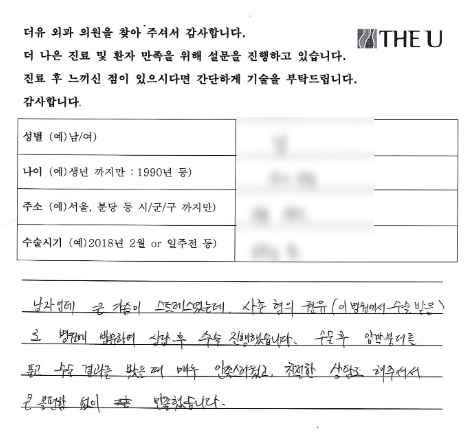 더유 외과 의원을 찾아 주셔서 감사합니다.
더 나은 진료 및 환자 만족을 위해 설문을 진행하고 있습니다.
진료 후 느끼신 점이 있으시다면 간단하게 기술을 부탁드립니다.
감사합니다.
THE U
성별 (예)남/여)
나이 (예)생년 까지만 : 1990년 등)
주소 (예)서울, 분당 등 시/군/구 까지만)
수술시기 (예)2018년 2월 or 일주전 등)
남자인데 큰 가슴이 스트레스였는데. 사촌 형의 권유 (이 병원에서 수술 받은)
로 병원에 방문하여 상담 후 수술 진행했습니다. 수술 후 압박붕대를
풀고 수술 결과를 봤을 때 매우 만족스러웠고, 친절한 상담도 해주셔서
큰 불편함 없이 만족했습니다.